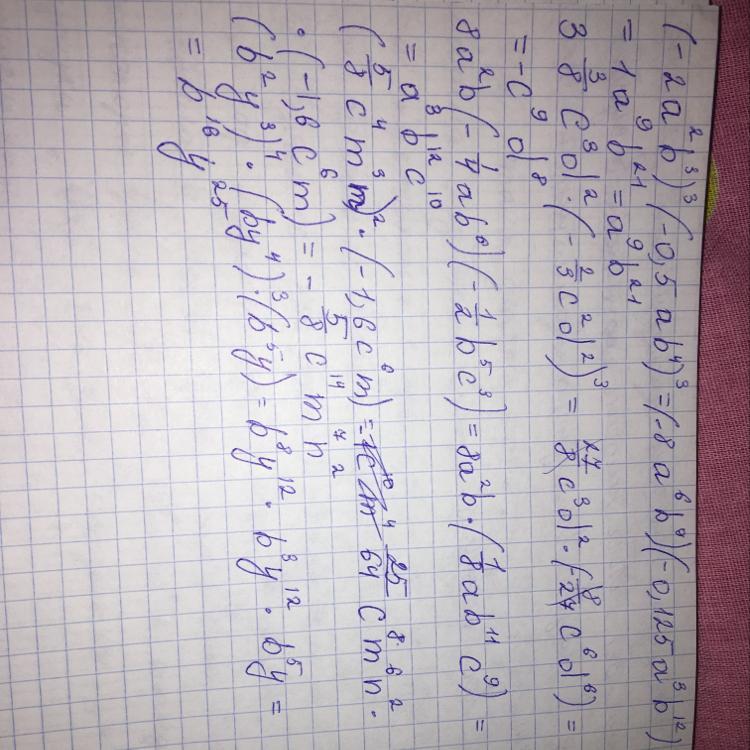 (-2a²b³)³(-0,5ab⁴)³=(-8a⁶b⁹)(-0,125a³b¹²)
=1a⁹b²¹=a⁹b²¹
3 3/8 c³d²·(-2/3 c²d²)³= 27/8 c³d²·(-8/27 c⁶d⁶)=
=-c⁹d⁸
8a²b(-1/4 ab⁶)(-1/2 b⁵c³)=8a²b·(1/8 ab¹¹c⁹)=
=a³b¹²c¹⁰
(5/8 c⁴m³n)²·(-1,6c⁶m)= 25/64 c⁸m⁶n²·
·(-1,6c⁶m)=-5/8 c¹⁴m⁷n²
(b²y³)⁴·(by⁴)³·(b⁵y)=b⁸y¹²·b³y¹²·b⁵y=
=b¹⁶y²⁵